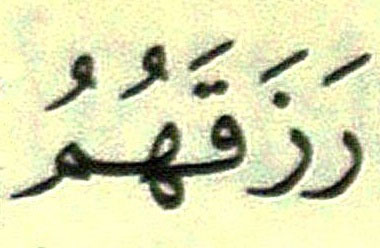 رَزَقَهُمُ